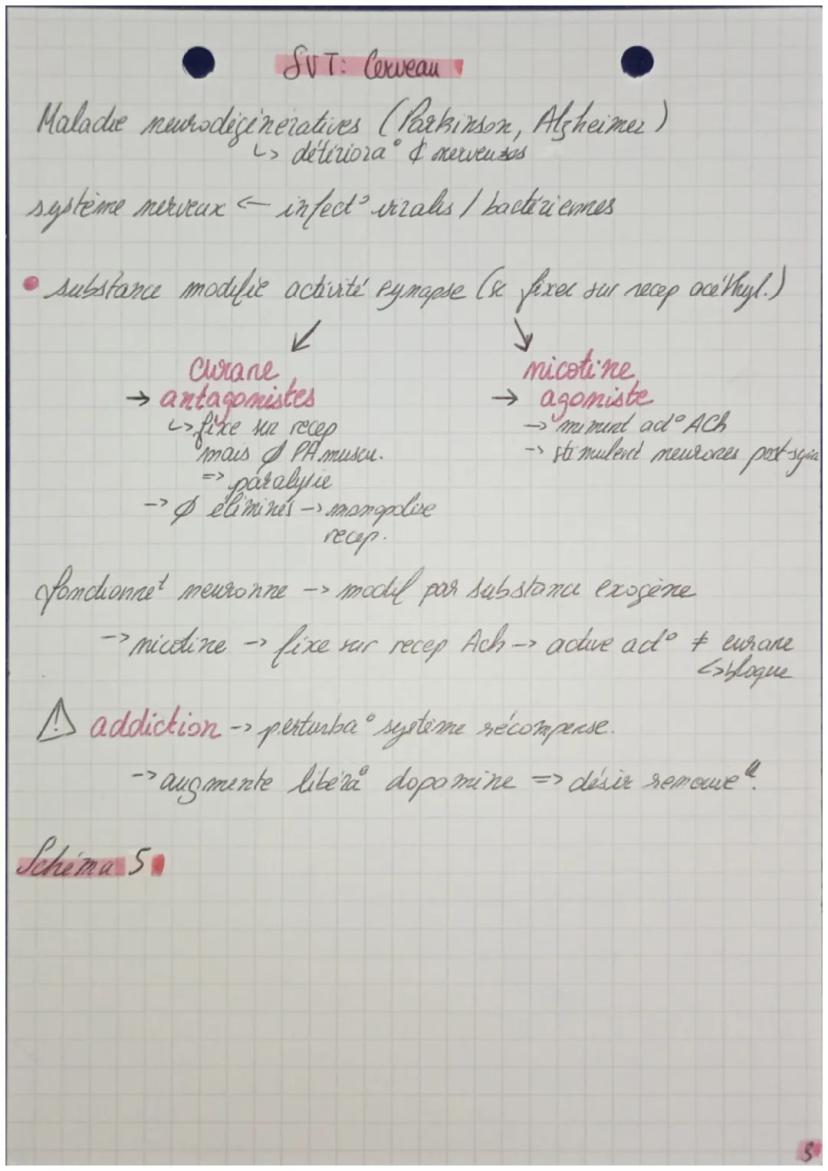 SVT: Cerveau
Maladie neurodégénératives (Parkinson, Alzheimer)
↳ détériora° ¢ nerveuses
système nerveux ← infect° virales / bactériennes
• substance modifie activité synapse (se fixer sur recep acéthyl.)
↙ ↘
curare
→ antagonistes
↳ fixe sur recep
mais ∅ PA muscu.
=> paralysie
-> ∅ éliminés -> monopolise
recep.
nicotine
→ agoniste
-> miment act° ACh
-> stimulent neurones post-syna
fonctionnet neuronne -> modif par substance exogène
-> nicotine -> fixe sur recep Ach -> active act° ≠ curare
↳ bloque
⚠ addiction -> perturba° système récompense.
-> augmente libéra° dopamine => désir
Schéma 5
5